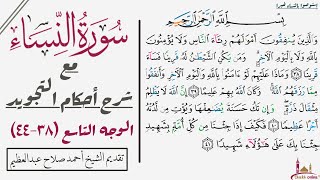 سُورَةُ النِّسَاءِ
مع
شرح أحكام التجويد
الوجه التاسع (٣٨-٤٤)
تقديم الشيخ أحمد صلاح عبدالعظيم
بِسْمِ اللَّهِ الرَّحْمَٰنِ الرَّحِيمِ
وَالَّذِينَ يُنفِقُونَ أَمْوَالَهُمْ رِئَاءَ النَّاسِ وَلَا يُؤْمِنُونَ
بِاللَّهِ وَلَا بِالْيَوْمِ الْآخِرِ وَمَن يَكُنِ الشَّيْطَانُ لَهُ قَرِينًا فَسَاءَ
قَرِينًا ٣٨ وَمَاذَا عَلَيْهِمْ لَوْ ءَامَنُوا بِاللَّهِ وَالْيَوْمِ الْآخِرِ وَأَنفَقُوا
مِمَّا رَزَقَهُمُ اللَّهُ وَكَانَ اللَّهُ بِهِمْ عَلِيمًا ٣٩ إِنَّ اللَّهَ لَا يَظْلِمُ
مِثْقَالَ ذَرَّةٍ وَإِن تَكُ حَسَنَةً يُضَاعِفْهَا وَيُؤْتِ مِن لَّدُنْهُ
أَجْرًا عَظِيمًا ٤٠ فَكَيْفَ إِذَا جِئْنَا مِن كُلِّ أُمَّةٍ بِشَهِيدٍ وَ
جِئْنَا بِكَ عَلَىٰ هَٰؤُلَاءِ شَهِيدًا ٤١